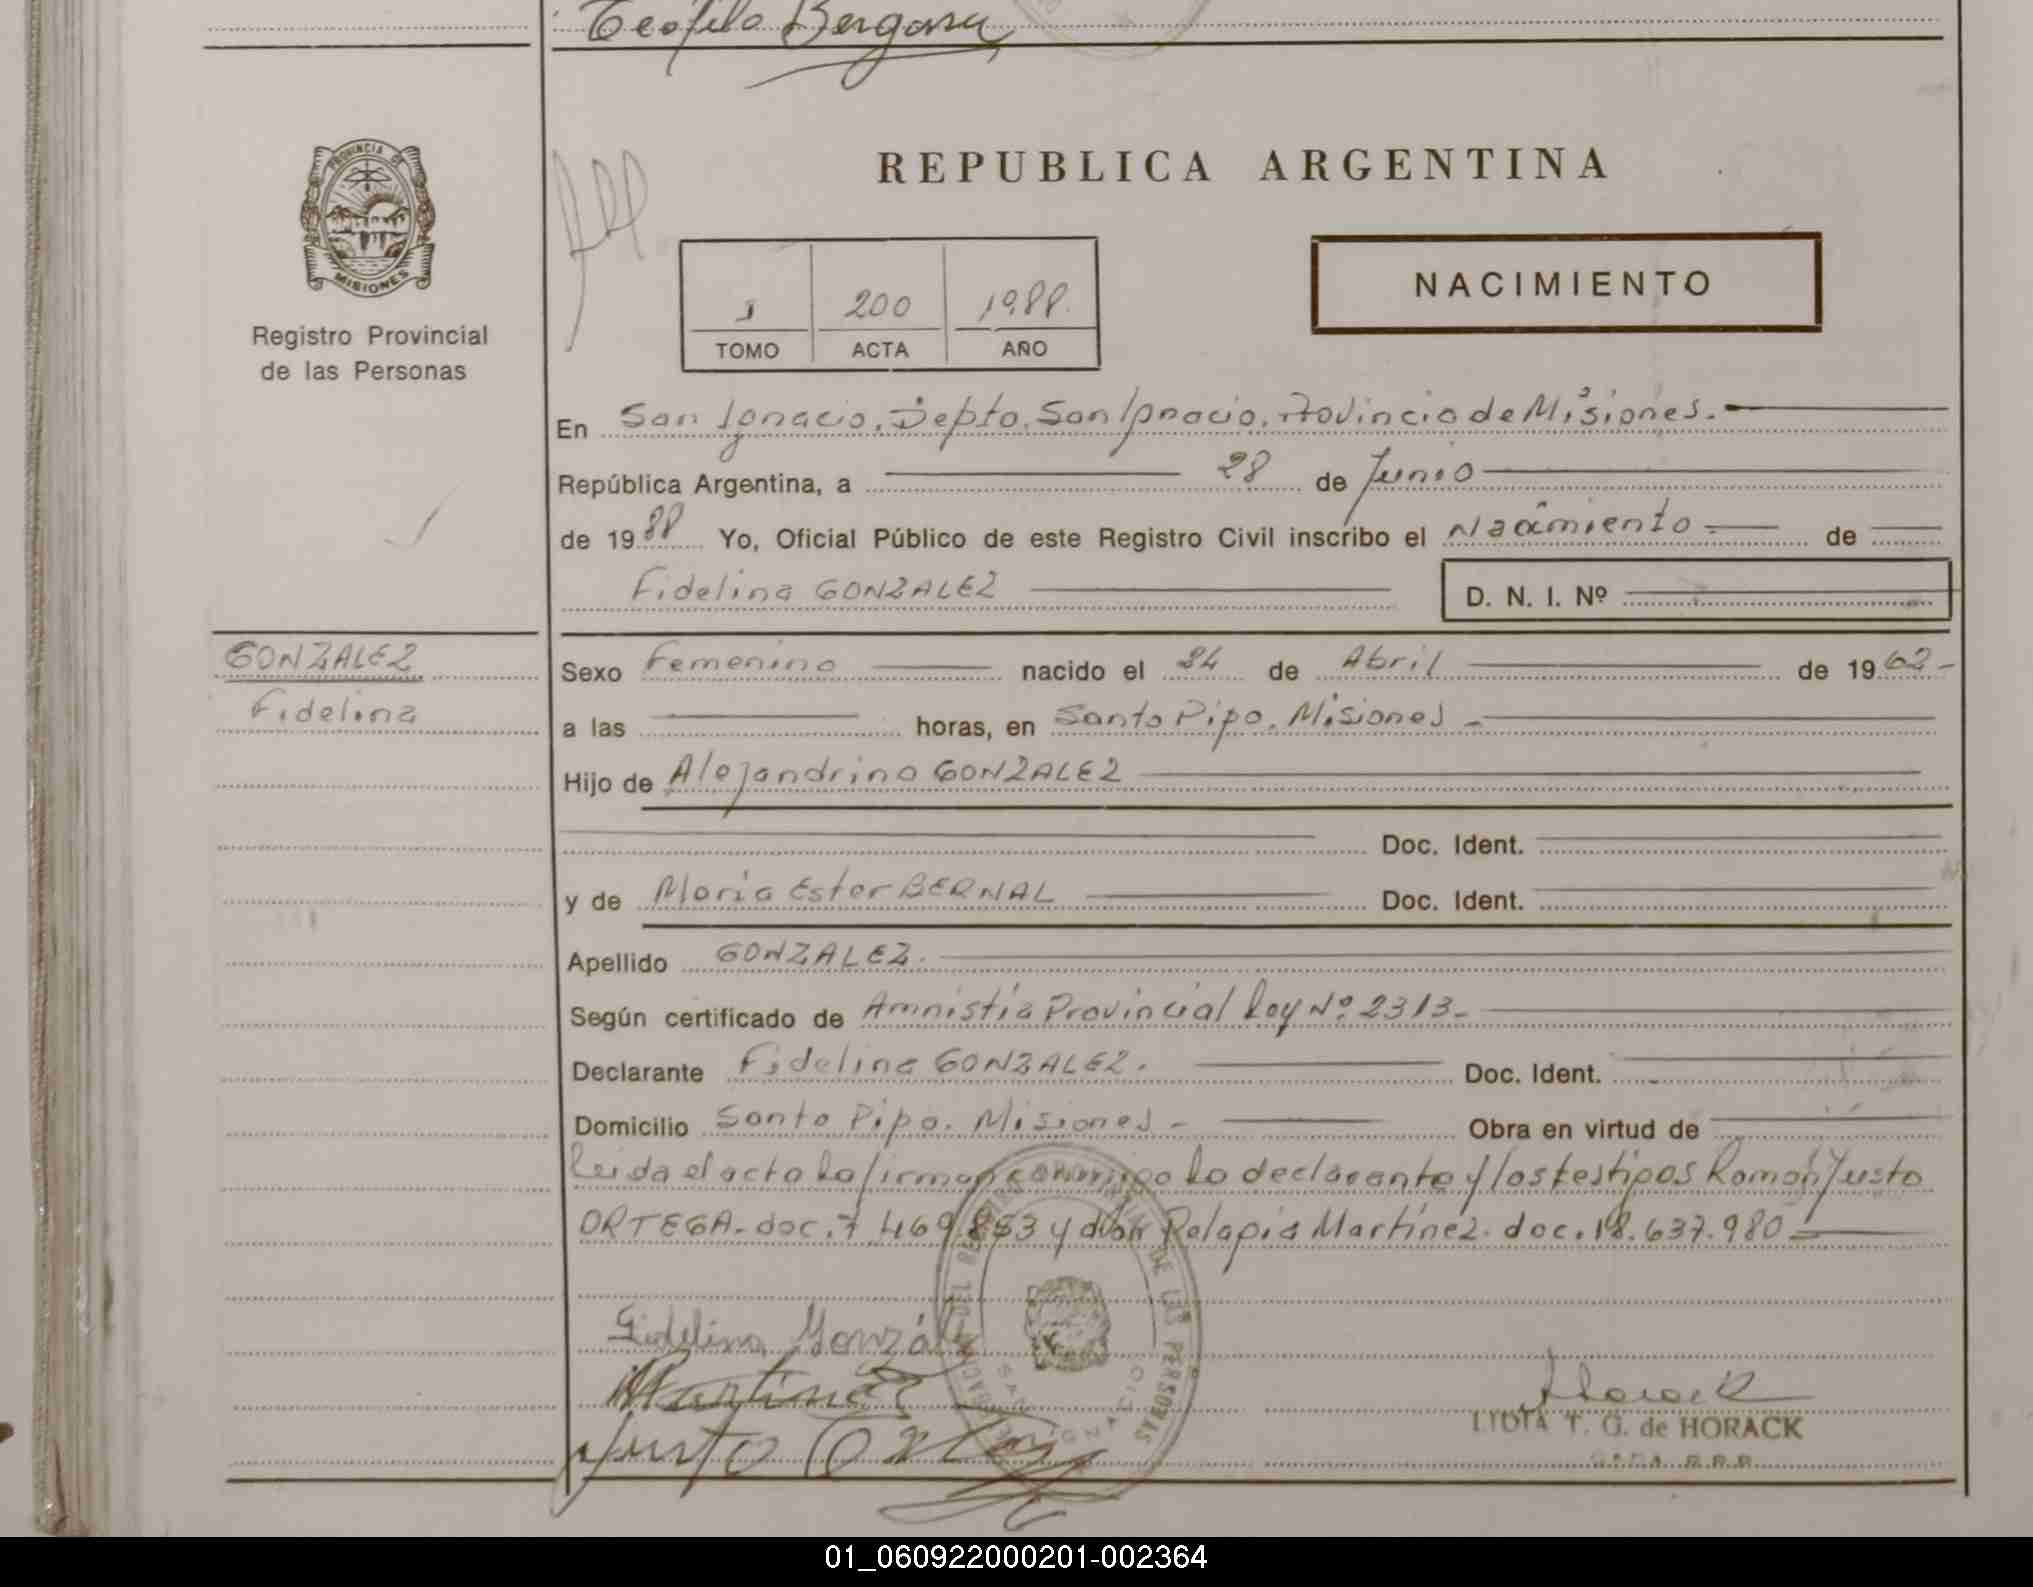 Teofilo Bergara
PROVINCIA DE
MISIONES
Registro Provincial
de las Personas
REPUBLICA ARGENTINA
1 200 1988.
TOMO ACTA AÑO
NACIMIENTO
En San Ignacio, Depto. San Ignacio, Provincia de Misiones.
República Argentina, a 28 de Junio
de 1988 Yo, Oficial Público de este Registro Civil inscribo el Nacimiento de
Fidelina GONZALEZ D. N. I. Nº
GONZALEZ
Fidelina
Sexo Femenino nacido el 24 de Abril de 1962-
a las horas, en Santo Pipo. Misiones -
Hijo de Alejandrino GONZALEZ
Doc. Ident.
y de Maria Ester BERNAL Doc. Ident.
Apellido GONZALEZ.
Según certificado de Amnistia Provincial Ley Nº 2313-
Declarante Fidelina GONZALEZ. Doc. Ident.
Domicilio Santo Pipo. Misiones - Obra en virtud de
Leida el acta la firman conmigo la declarante y los testigos Ramón Justo
ORTEGA- doc. 7 469.853 y don Pelagia Martínez. doc. 18.637.980-
Fidelina Gonzál
Martinez
Justo
DE LAS PERSONAS
SAN IGNACIO
Horack
LIDIA T. G. de HORACK
01_060922000201-002364